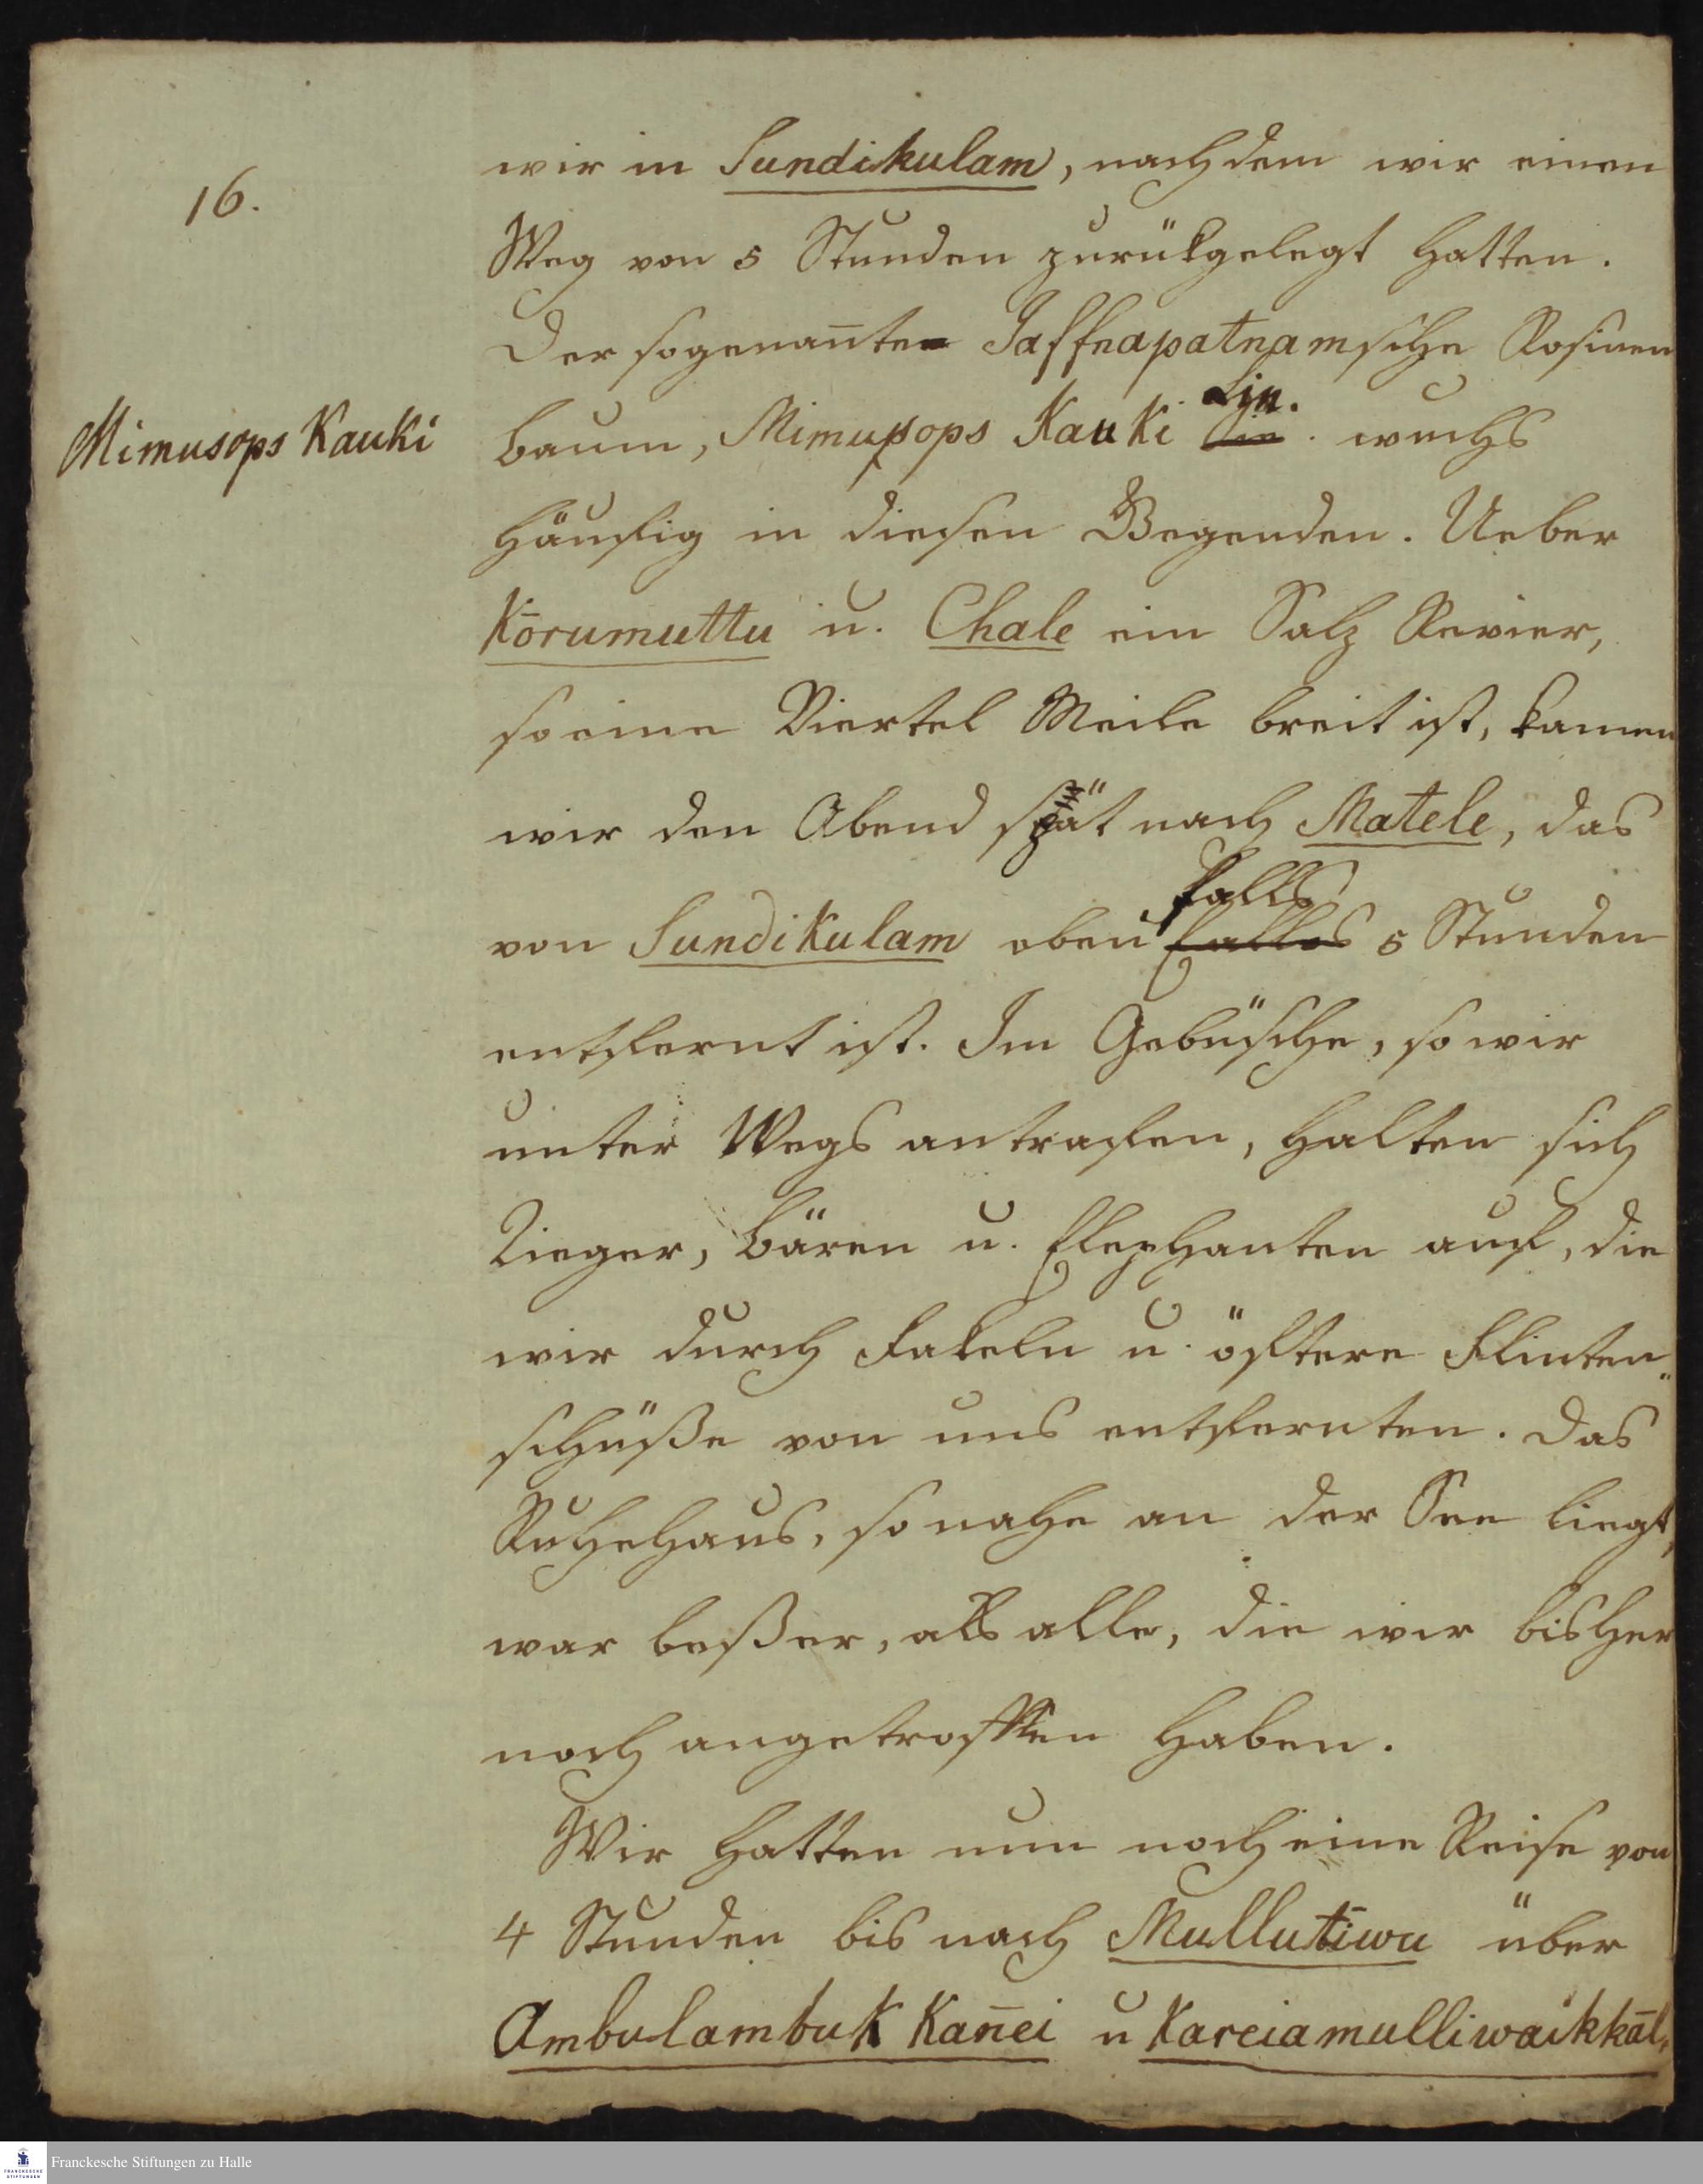 16.
wir in Sundikulam, nachdem wir einen
Weg von 5 Stunden zurükgelegt hatten.
Der sogenan̄te Jaffnapatnamsche Rosinen
Mimusops Kauki
baum, Mimusops Kauki Lin. wuchs
häufig in diesen Gegenden. Ueber
Kōrumuttu u. Chale ein Salz Revier,
so eine Viertel Meile breit ist, kamen
wir den Abend spät nach Matele, das
falls
von Sundikulam eben falls 5 Stunden
entfernt ist. Im Gebüsche, so wir
unter Wegs antrafen, halten sich
Tieger, Bären u. Elephanten auf, die
wir durch Fakeln u. öftere Flinten„
schüße von uns entfernten. Das
Ruhehaus, so nahe an der See liegt,
war beßer, als alle, die wir bisher
noch angetroffen haben.
Wir hatten nun noch eine Reise von
4 Stunden bis nach Mullutīwu über
Ambulambuk Kan̄ei u Kareiamulliwaikkāl,
Franckesche Stiftungen zu Halle
FRANCKESCHE
STIFTUNGEN